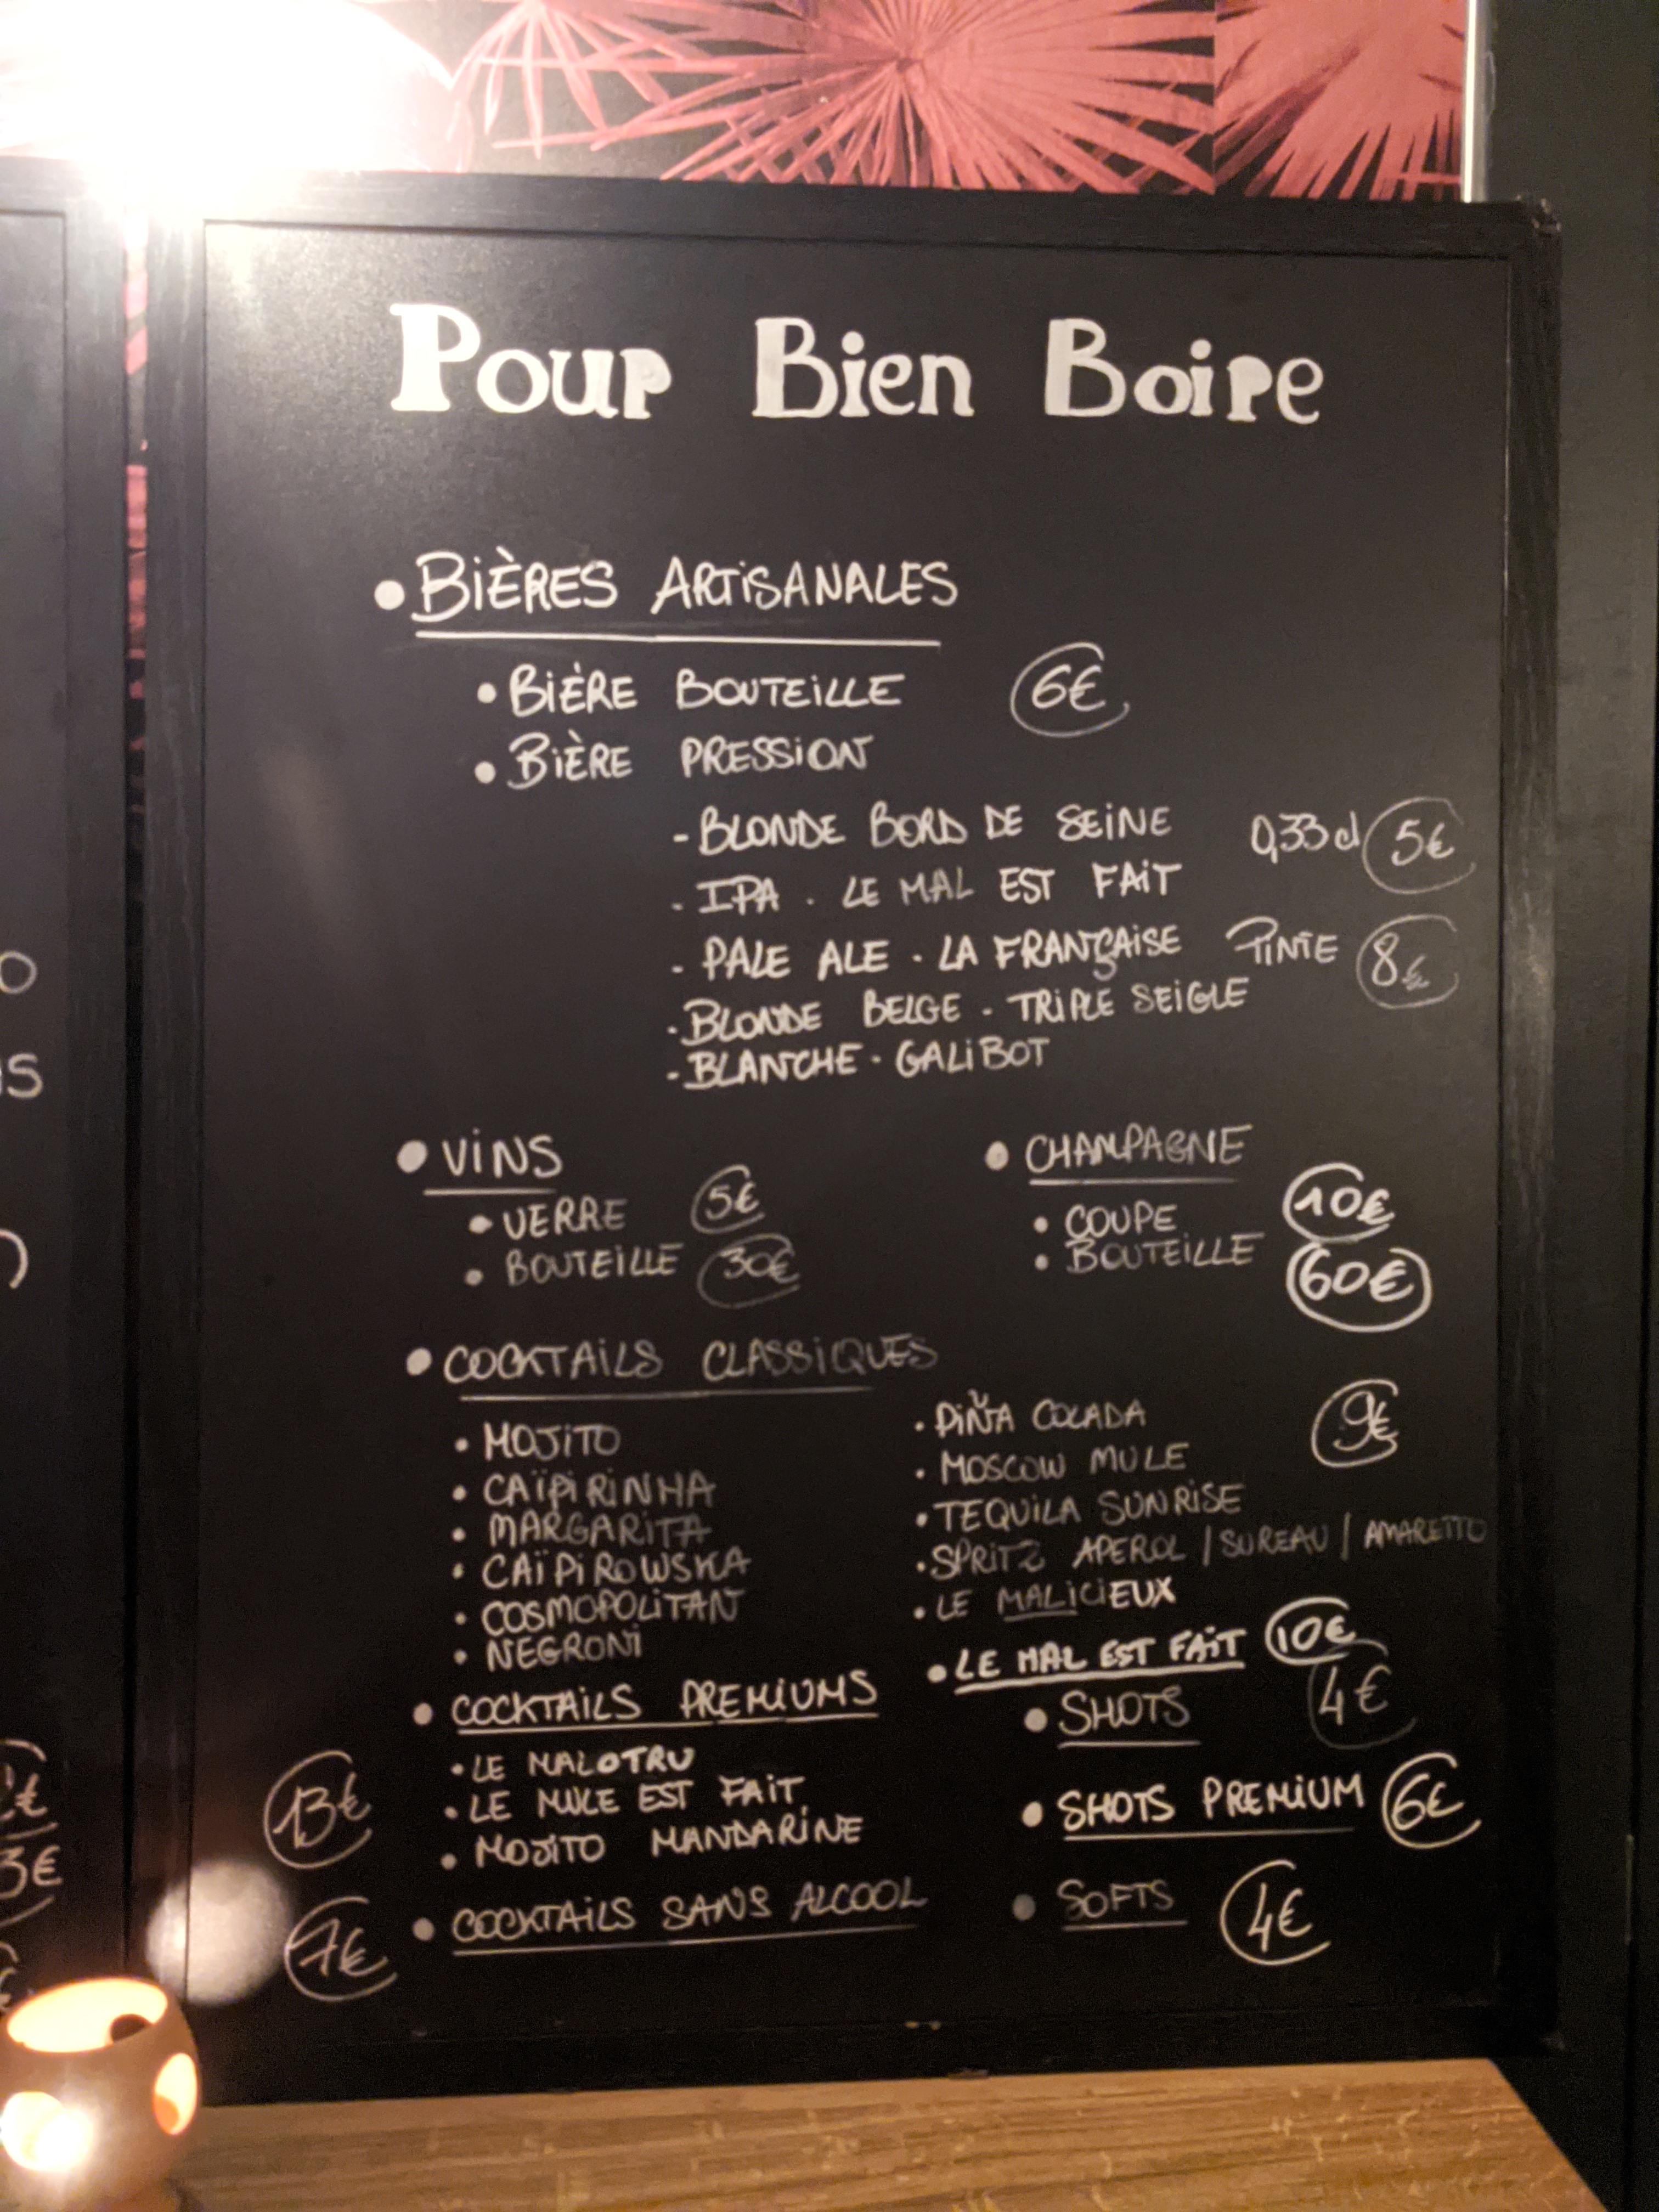 Pour Bien Boire
• BIÈRES ARTISANALES
• BIÈRE BOUTEILLE 6€
• BIÈRE PRESSION
- BLONDE BORD DE SEINE 0,33cl 5€
- IPA - LE MAL EST FAIT
- PALE ALE - LA FRANÇAISE PINTE 8€
- BLONDE BELGE - TRIPLE SEIGLE
- BLANCHE - GALIBOT
• VINS
• VERRE 5€
• BOUTEILLE 30€
• CHAMPAGNE
• COUPE 10€
• BOUTEILLE 60€
• COCKTAILS CLASSIQUES 9€
• MOJITO
• CAÏPIRINHA
• MARGARITA
• CAÏPIROWSKA
• COSMOPOLITAN
• NEGRONI
• PIÑA COLADA
• MOSCOW MULE
• TEQUILA SUNRISE
• SPRITZ APEROL / SUREAU / AMARETTO
• LE MALICIEUX
• LE MAL EST FAIT 10€
• COCKTAILS PREMIUMS
13€
• LE MALOTRU
• LE MULE EST FAIT
• MOJITO MANDARINE
7€ • COCKTAILS SANS ALCOOL
• SHOTS 4€
• SHOTS PREMIUM 6€
• SOFTS 4€